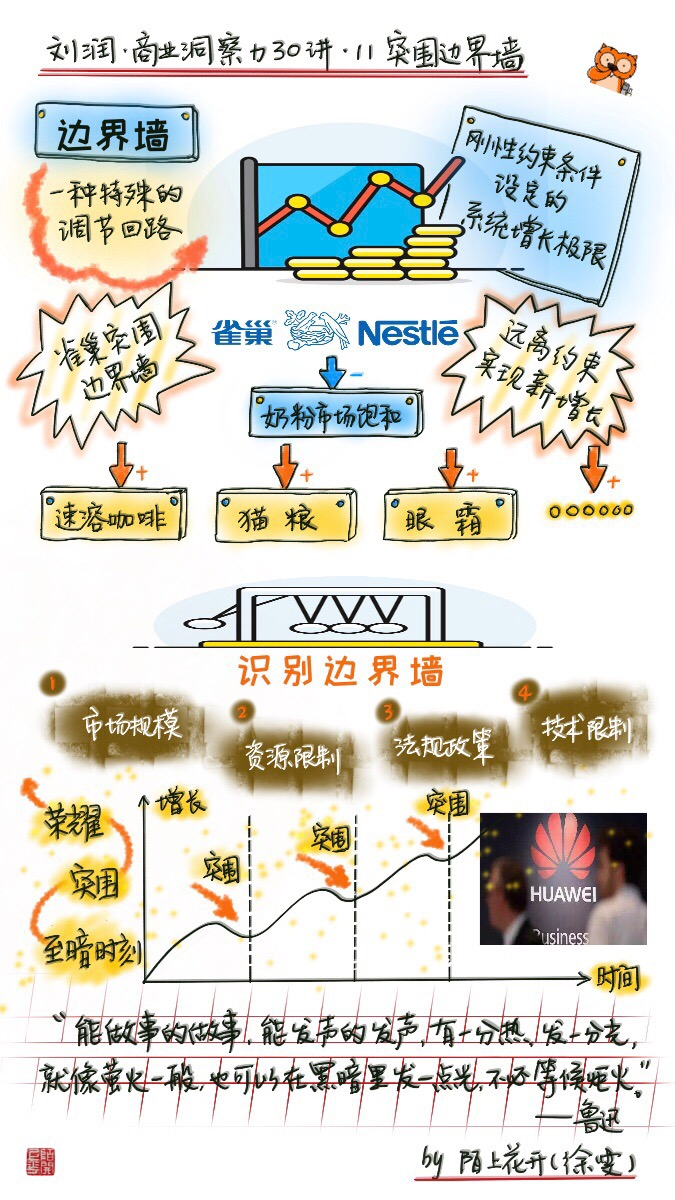 刘润·商业洞察力30讲·11 突围边界墙
边界墙
一种特殊的
调节回路
刚性约束条件
设定的
系统增长极限
雀巢突围
边界墙
雀巢® Nestlé
远离约束
实现新增长
奶粉市场饱和
速溶咖啡
猫粮
眼霜
识别边界墙
1
市场规模
2
资源限制
3
法规政策
4
技术限制
荣耀
突围
至暗时刻
增长
突围
突围
突围
时间
HUAWEI
Business
“能做事的做事,能发声的发声,有一分热、发一分光,
就像萤火一般,也可以在黑暗里发一点光,不必等候炬火。”
——鲁迅
by 陌上花开(徐雯)